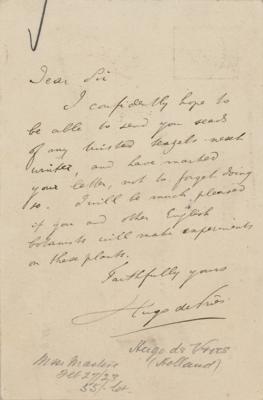 Dear Sir
I confidently hope to
be able to send you seeds
of my twisted teazels next
winter, and have marked
your letter, not to forget doing
so. I will be much pleased
if you and other English
botanists will make experiments
on these plants.
Faithfully yours
Hugo de Vries.
Hugo de Vries
(Holland)
Oct 27/23
55/- lot.